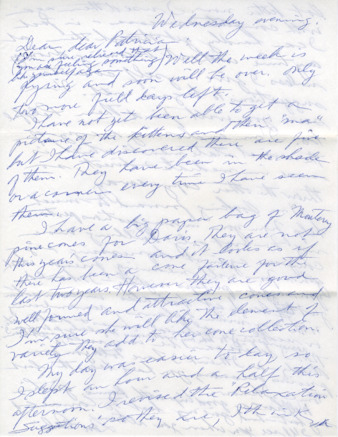 Wednesday evening.
Dear, dear Patricia:
Well the week is
flying and soon will be over. only
two more full days left.
I have not yet been able to get a
picture of the kittens and their "ma"
but I have discovered there are five
of them. They have been in the shade
or a corner every time I have seen
them.
I have a big paper bag of Monterey
pine cones for Doris. They are not
this year's cones and it looks as if
there has been a cone failure for the
last two years. However they are good
well formed and attractive cones and
I'm sure she will like the element of
variety they add to her cone collection.
My day was easier to day so
I slept an hour and a half this
afternoon. I revised the "Relaxation
Suggestions" so they are, I think